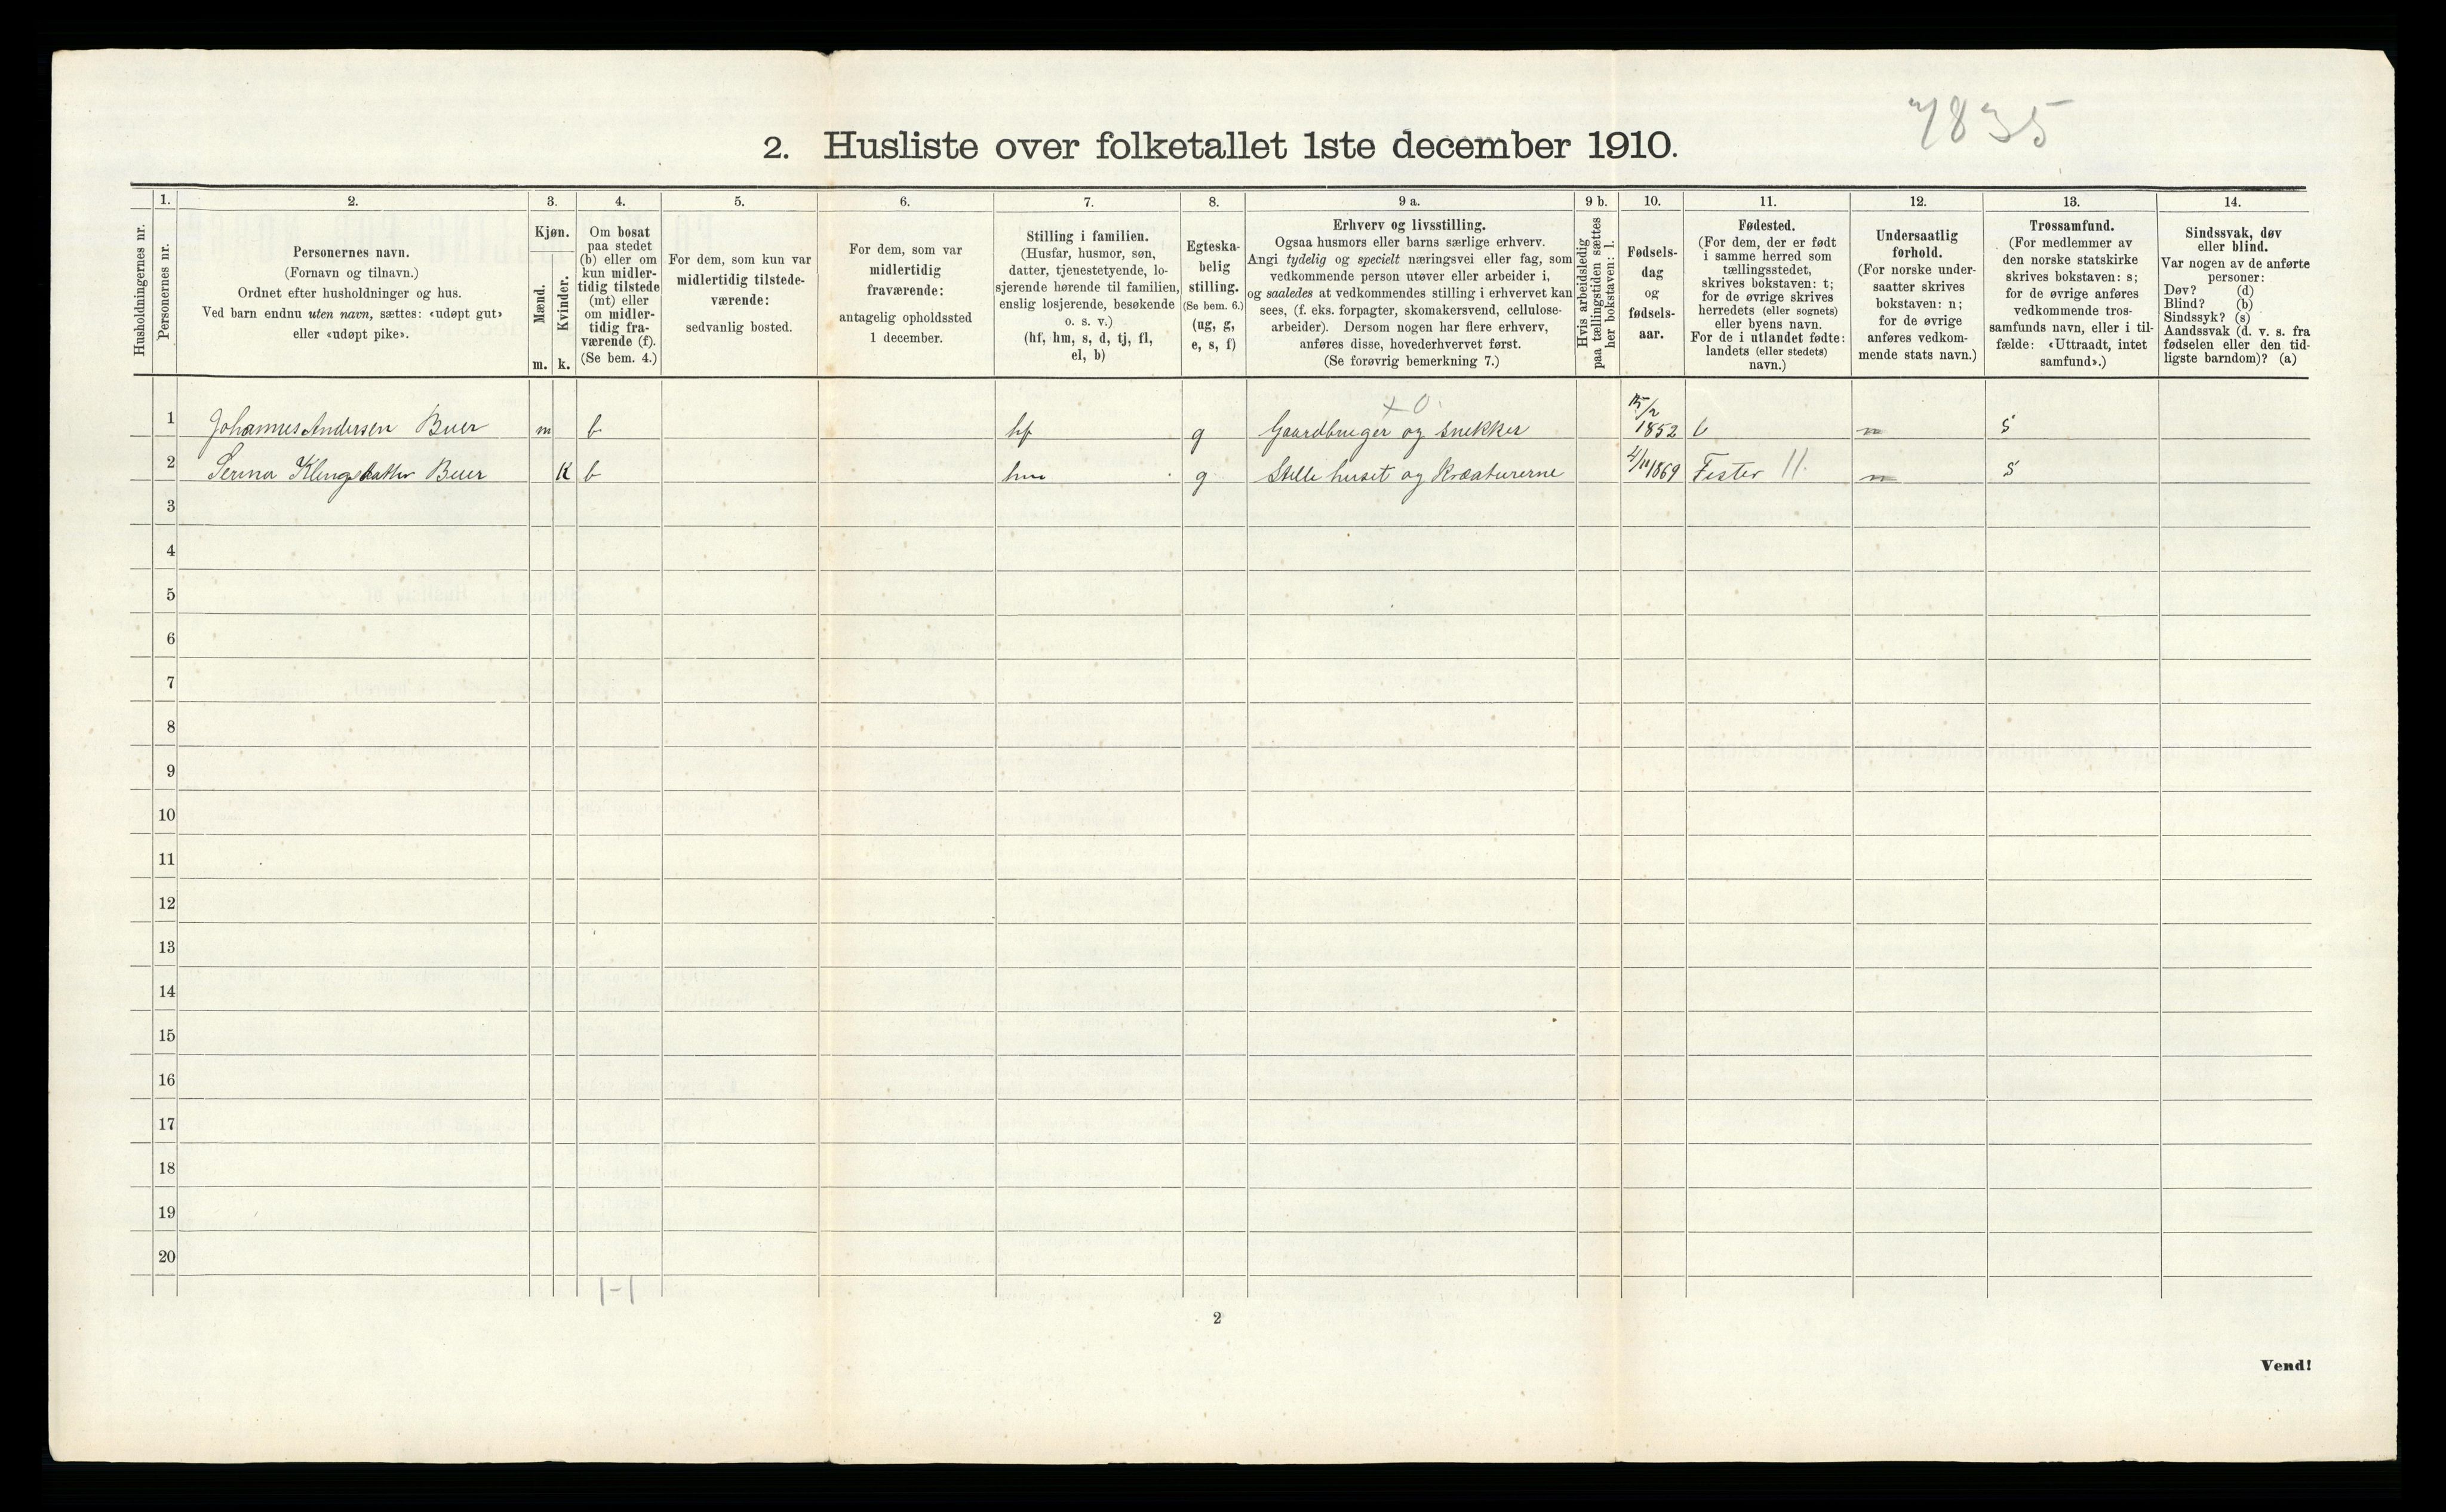 7835
2. Husliste over folketallet 1ste december 1910.
Husholdningernes nr.
1.
Personernes nr.
2.
Personernes navn.
(Fornavn og tilnavn.)
Ordnet efter husholdninger og hus.
Ved barn endnu uten navn, sættes: «udøpt gut»
eller «udøpt pike».
3.
Kjøn.
Mænd.
Kvinder.
m. k.
4.
Om bosat
paa stedet
(b) eller om
kun midler-
tidig tilstede
(mt) eller
om midler-
tidig fra-
værende (f).
(Se bem. 4.)
5.
For dem, som kun var
midlertidig tilstede-
værende:
sedvanlig bosted.
6.
For dem, som var
midlertidig
fraværende:
antagelig opholdssted
1 december.
7.
Stilling i familien.
(Husfar, husmor, søn,
datter, tjenestetyende, lo-
sjerende hørende til familien,
enslig losjerende, besøkende
o. s. v.)
(hf, hm, s, d, tj, fl,
el, b)
8.
Egteska-
belig
stilling.
(Se bem. 6.)
(ug, g,
e, s, f)
9 a.
Erhverv og livsstilling.
Ogsaa husmors eller barns særlige erhverv.
Angi tydelig og specielt næringsvei eller fag, som
vedkommende person utøver eller arbeider i,
og saaledes at vedkommendes stilling i erhvervet kan
sees, (f. eks. forpagter, skomakersvend, cellulose-
arbeider). Dersom nogen har flere erhverv,
anføres disse, hovederhvervet først.
(Se forøvrig bemerkning 7.)
9 b.
Hvis arbeidsledig
paa tællingstiden sættes
her bokstaven: l.
10.
Fødsels-
dag
og
fødsels-
aar.
11.
Fødested.
(For dem, der er født
i samme herred som
tællingsstedet,
skrives bokstaven: t;
for de øvrige skrives
herredets (eller sognets)
eller byens navn.
For de i utlandet fødte:
landets (eller stedets)
navn.)
12.
Undersaatlig
forhold.
(For norske under-
saatter skrives
bokstaven: n;
for de øvrige
anføres vedkom-
mende stats navn.)
13.
Trossamfund.
(For medlemmer av
den norske statskirke
skrives bokstaven: s;
for de øvrige anføres
vedkommende tros-
samfunds navn, eller i til-
fælde: «Uttraadt, intet
samfund».)
14.
Sindssvak, døv
eller blind.
Var nogen av de anførte
personer:
Døv? (d)
Blind? (b)
Sindssyk? (s)
Aandssvak (d. v. s. fra
fødselen eller den tid-
ligste barndom)? (a)
+ 0
1 Johannes Andersen Buer m b hf g Gaardbruger og snekker 15/2 1852 t n s
2 Serina Buer K b hm g Stelle huset og Kræaturerne 4/11 1869 11 n s
3
4
5
6
7
8
9
10
11
12
13
14
15
16
17
18
19
20
1-1
2
Vend!